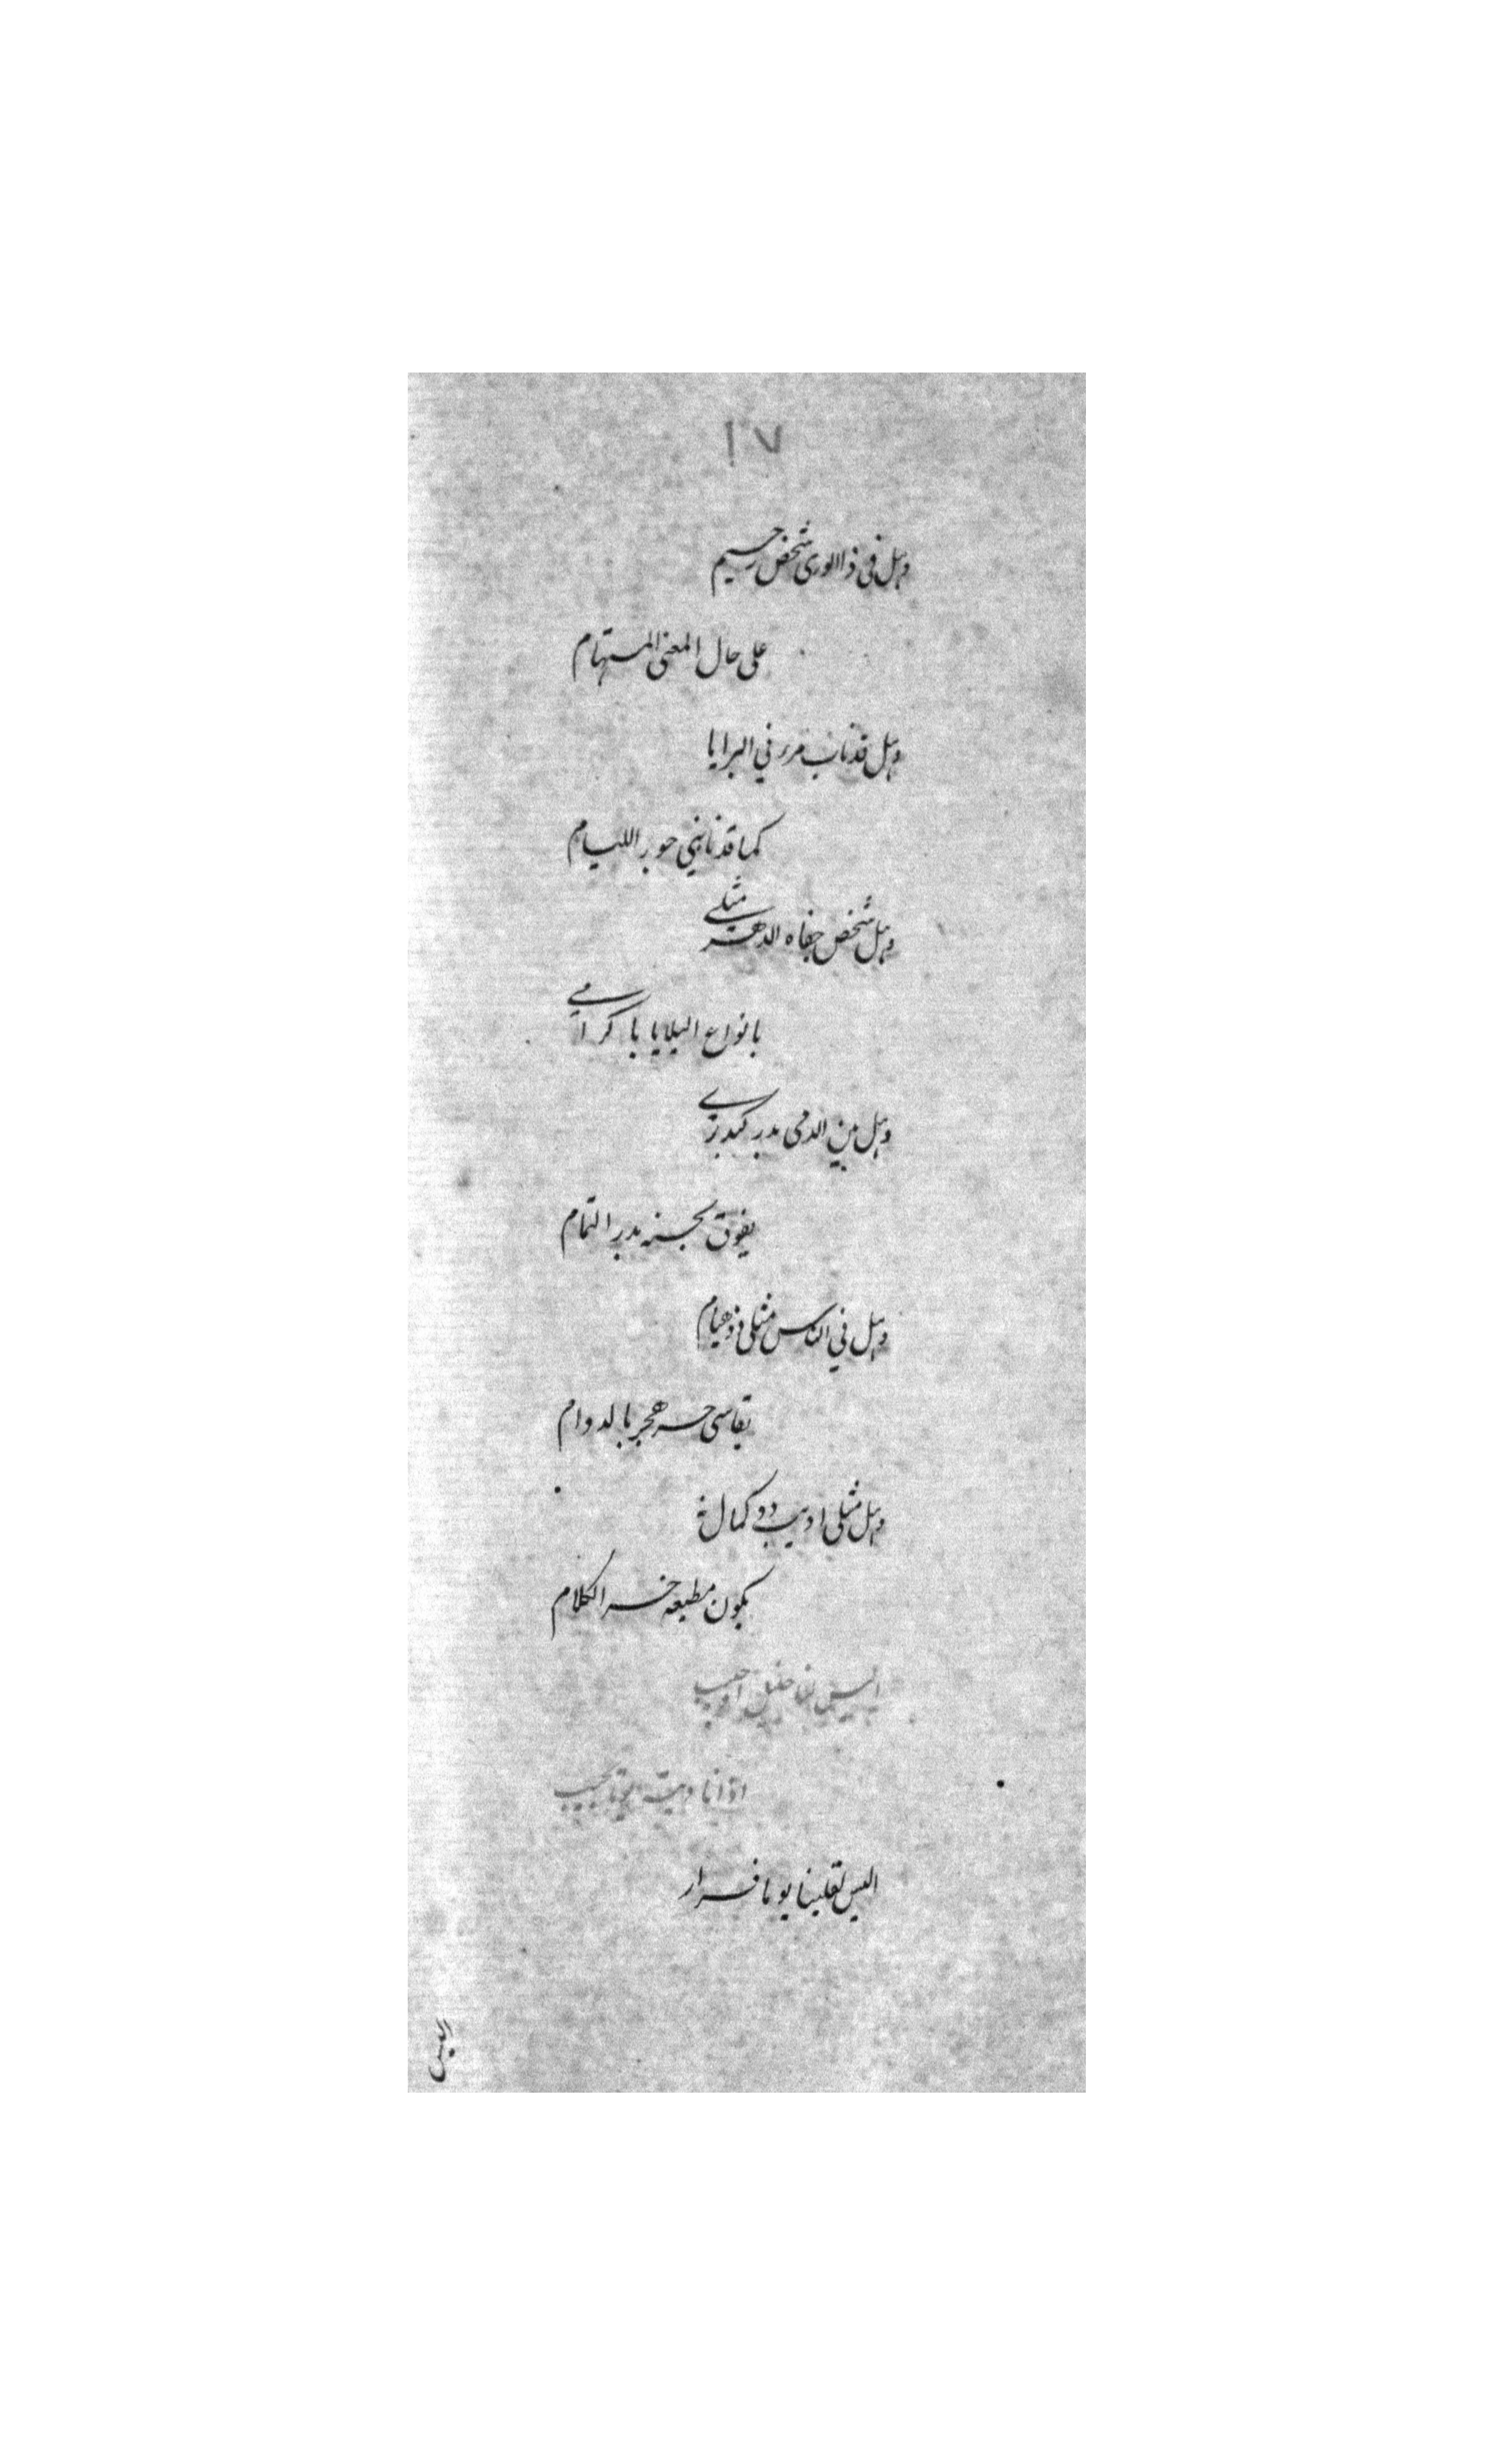 ١٧
وهل في ذا الورى شخص رحيم
على حال المعنى المستهام
وهل قد ناب مرء في البرايا
كما قد نابني جور الليام
وهل شخص جفاه الدهر مثلي
بانواع البلايا يا كرامي
وهل بين الدمى بدر كبدري
يفوق بحسنه بدر التمام
وهل في الناس مثلي ذو هيام
يقاسي حر هجر بالدوام
وهل مثلي اديب ذو كمال
يكون مطيعه خير الكلام
اليس لنا خليل او حبيب
اذا ناديته يوما يجيب
اليس لقلبنا يوما قرار
اليس